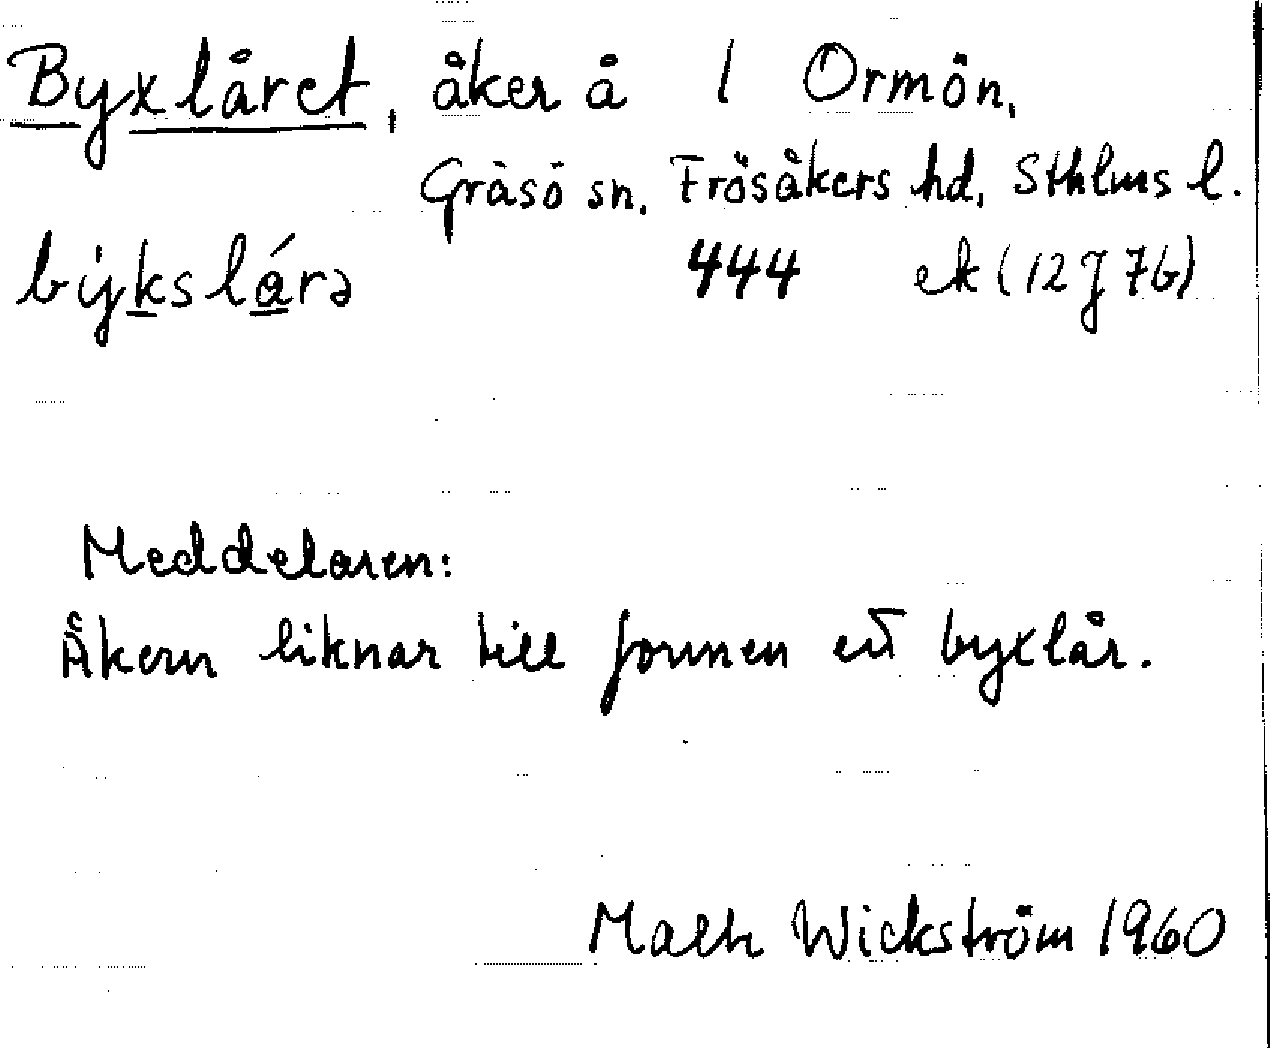 Byxlåret, åker å 1 Ormön,
Gräsö sn. Frösåkers hd, Sthlms l.
býkslárə 444 ek (12 J 7b)
Meddelaren:
Åkern liknar till formen ett byxlår.
Wickström 1960